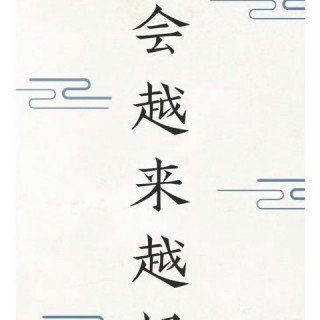 会越来越